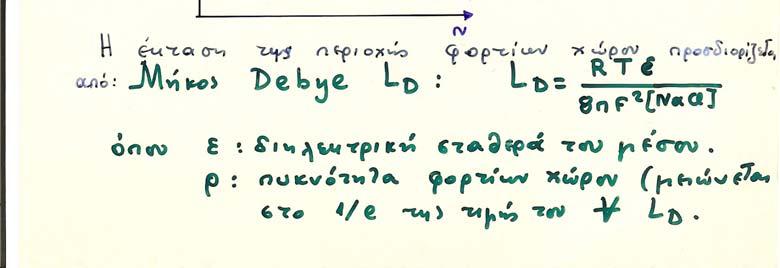 Ν
Η έκταση της περιοχής φορτίων χώρου προσδιορίζεται
από: Μήκος Debye L_D : L_D = RTε / 8πF²[NaCl]
όπου ε : διηλεκτρική σταθερά του μέσου.
ρ : πυκνότητα φορτίων χώρου (μειώνεται
στο 1/e της τιμής του ∀ L_D.